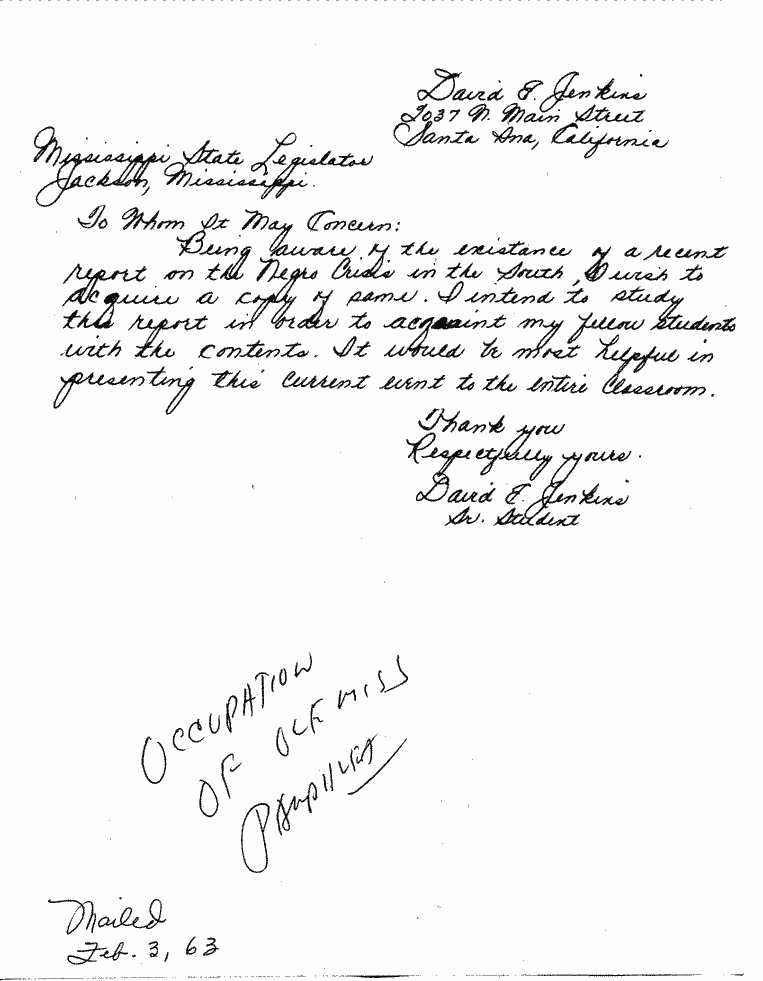 David E. Jenkins
2037 N. Main Street
Santa Ana, California
Mississippi State Legislator
Jackson, Mississippi.
To Whom It May Concern:
Being aware of the existance of a recent
report on the Negro Crisis in the South, I wish to
acquire a copy of same. I intend to study
this report in order to acquaint my fellow students
with the contents. It would be most helpful in
presenting this current event to the entire classroom.
Thank you
Respectfully yours.
David E. Jenkins
Sr. Student
OCCUPATION
OF OLE MISS
PAMPHLET
Mailed
Feb. 3, 63